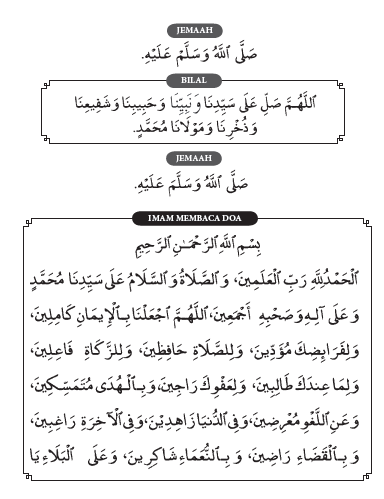 JEMAAH
صَلَّى ٱللَّهُ وَسَلَّمْ عَلَيْهِ.
BILAL
اَللَّهُمَّ صَلِّ عَلَى سَيِّدِنَا وَنَبِيِّنَا وَحَبِيبِنَا وَشَفِيعِنَا
وَذُخْرِنَا وَمَوْلَانَا مُحَمَّدٍ.
JEMAAH
صَلَّى ٱللَّهُ وَسَلَّمَ عَلَيْهِ.
IMAM MEMBACA DOA
بِسْمِ ٱللَّهِ ٱلرَّحْمَـٰنِ ٱلرَّحِيمِ
اَلْحَمْدُ لِلَّهِ رَبِّ ٱلْعَلَمِينَ، وَٱلصَّلَاةُ وَٱلسَّلَامُ عَلَى سَيِّدِنَا مُحَمَّدٍ
وَعَلَى آلِهِ وَصَحْبِهِ أَجْمَعِينَ، ٱللَّهُمَّ ٱجْعَلْنَا بِٱلْإِيمَانِ كَامِلِينَ،
وَلِفَرَايِضِكَ مُؤَدِّينَ، وَلِلصَّلَاةِ حَافِظِينَ، وَلِلزَّكَاةِ فَاعِلِينَ،
وَلِمَا عِنْدَكَ طَالِبِينَ، وَلِعَفْوِكَ رَاجِينَ، وَبِٱلْهُدَى مُتَمَسِّكِينَ،
وَعَنِ ٱللَّغْوِ مُعْرِضِينَ، وَفِى ٱلدُّنْيَا زَاهِدِيْنَ، وَفِى ٱلْآخِرَةِ رَاغِبِينَ،
وَبِٱلْقَضَاءِ رَاضِينَ، وَبِٱلنُّعَمَاءِ شَاكِرِينَ، وَعَلَى ٱلْبَلَاءِ يَا